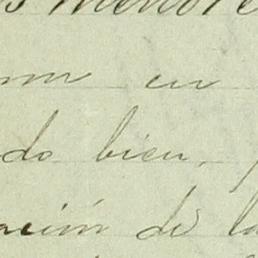 s menore
en
do bien,
ación de la